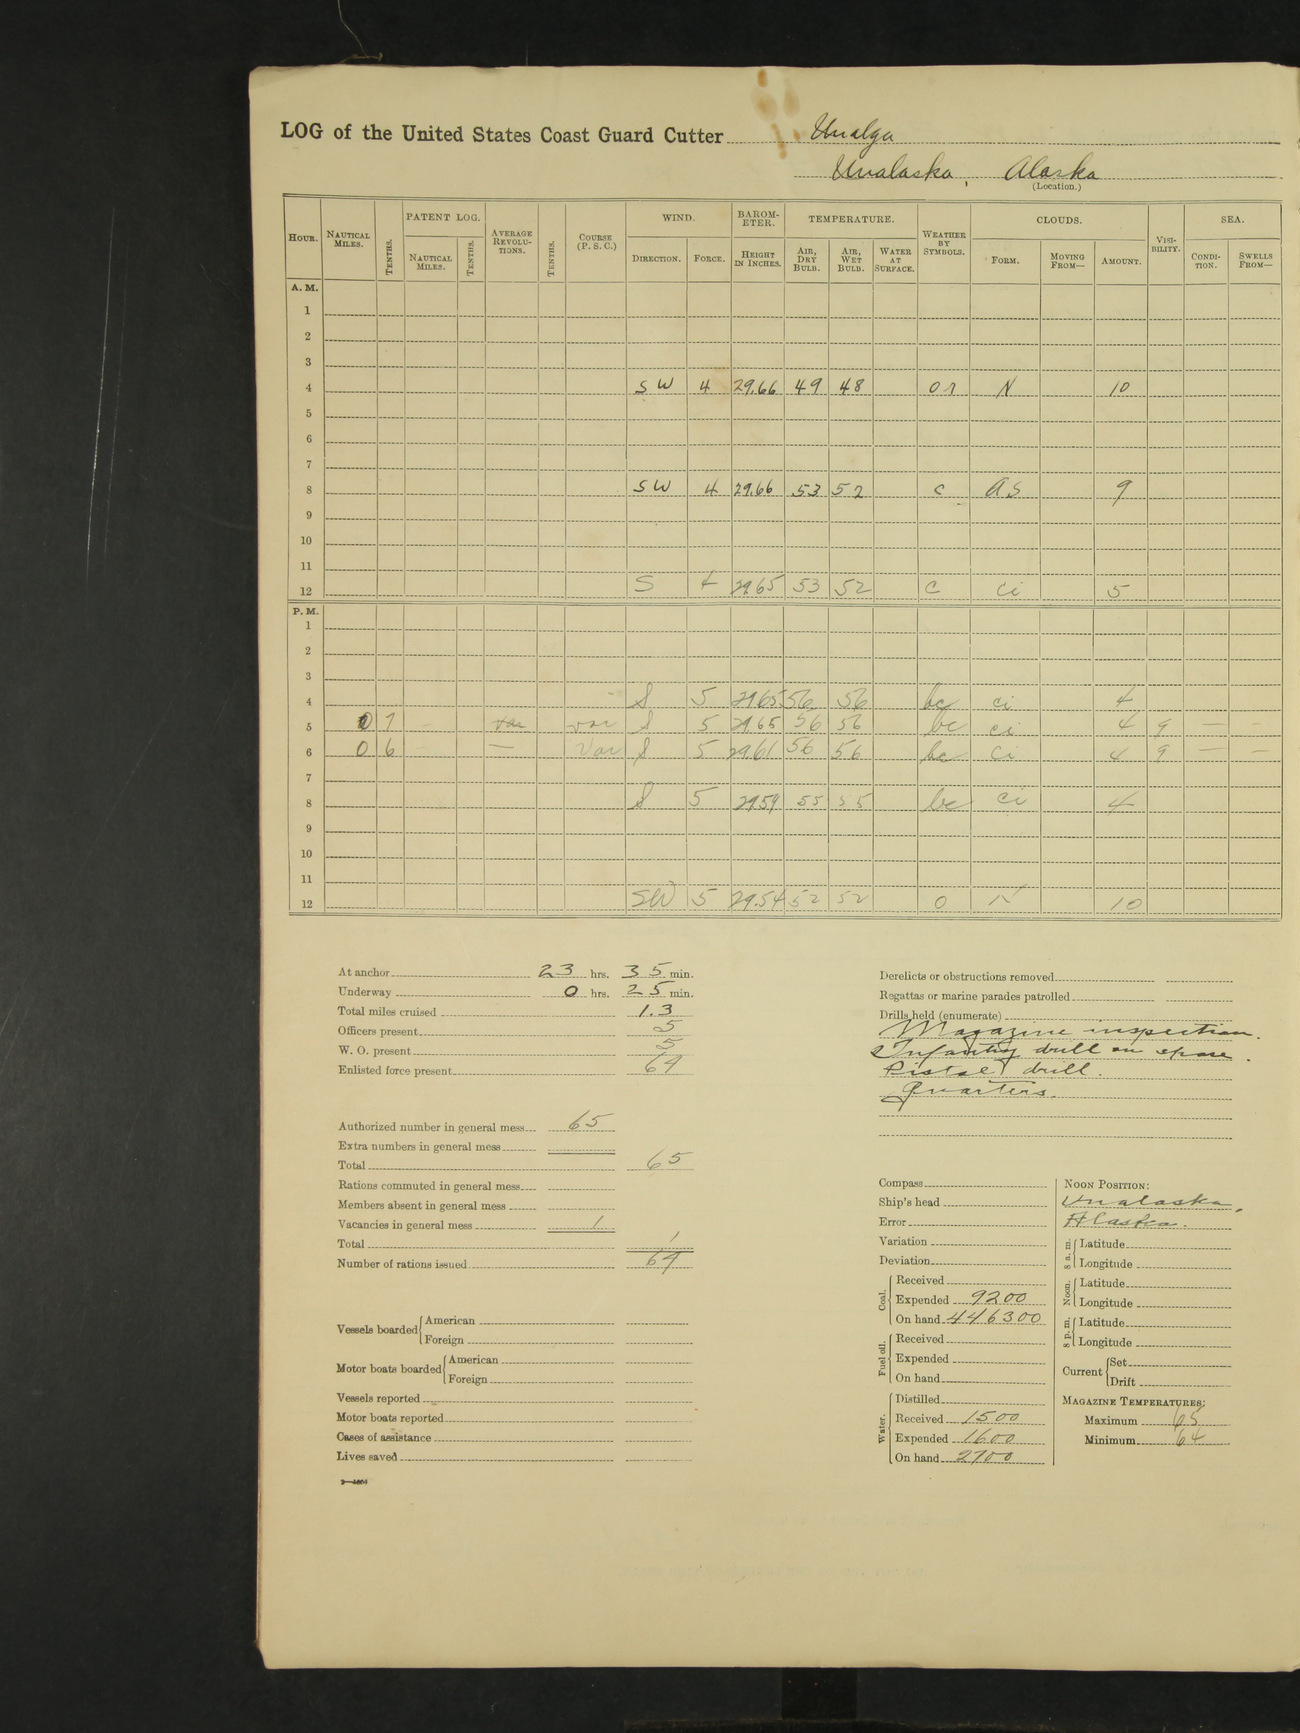 LOG of the United States Coast Guard Cutter Unalga
Unalaska, Alaska
(Location.)
HOUR. NAUTICAL MILES. TENTHS. PATENT LOG. NAUTICAL MILES. TENTHS. AVERAGE REVOLUTIONS. TENTHS. COURSE (P. S. C.) WIND. DIRECTION. FORCE. BAROMETER. HEIGHT IN INCHES. TEMPERATURE. AIR, DRY BULB. AIR, WET BULB. WATER AT SURFACE. WEATHER BY SYMBOLS. CLOUDS. FORM. MOVING FROM— AMOUNT. VISIBILITY. SEA. CONDITION. SWELLS FROM—
A. M.
1
2
3
4 SW 4 29.66 49 48 or N 10
5
6
7
8 SW 4 29.66 53 52 c AS 9
9
10
11
12 S 4 29.65 53 52 c ci 5
P. M.
1
2
3
4 S 5 29.65 56 56 bc ci 4
5 0 7 — var var S 5 29.65 56 56 bc ci 4 9 — —
6 0 6 — — Var S 5 29.61 56 56 bc ci 4 9 — —
7
8 S 5 29.59 55 55 bc ci 4
9
10
11
12 SW 5 29.54 52 52 o N 10
At anchor 23 hrs. 35 min.
Underway 0 hrs. 25 min.
Total miles cruised 1.3
Officers present 5
W. O. present 5
Enlisted force present 69
Authorized number in general mess 65
Extra numbers in general mess
Total 65
Rations commuted in general mess
Members absent in general mess
Vacancies in general mess 1
Total 1
Number of rations issued 64
Vessels boarded American
Foreign
Motor boats boarded American
Foreign
Vessels reported
Motor boats reported
Cases of assistance
Lives saved
Derelicts or obstructions removed
Regattas or marine parades patrolled
Drills held (enumerate)
Magazine inspection.
Infantry drill on shore.
Pistol drill.
Quarters.
Compass
Ship's head
Error
Variation
Deviation
Coal. Received
Expended 9200
On hand 446300
Fuel oil. Received
Expended
On hand
Water. Distilled
Received 1500
Expended 1600
On hand 2700
NOON POSITION:
Unalaska,
Alaska.
8 a. m. Latitude
Longitude
Noon. Latitude
Longitude
8 p. m. Latitude
Longitude
Current Set
Drift
MAGAZINE TEMPERATURES:
Maximum 65
Minimum 64